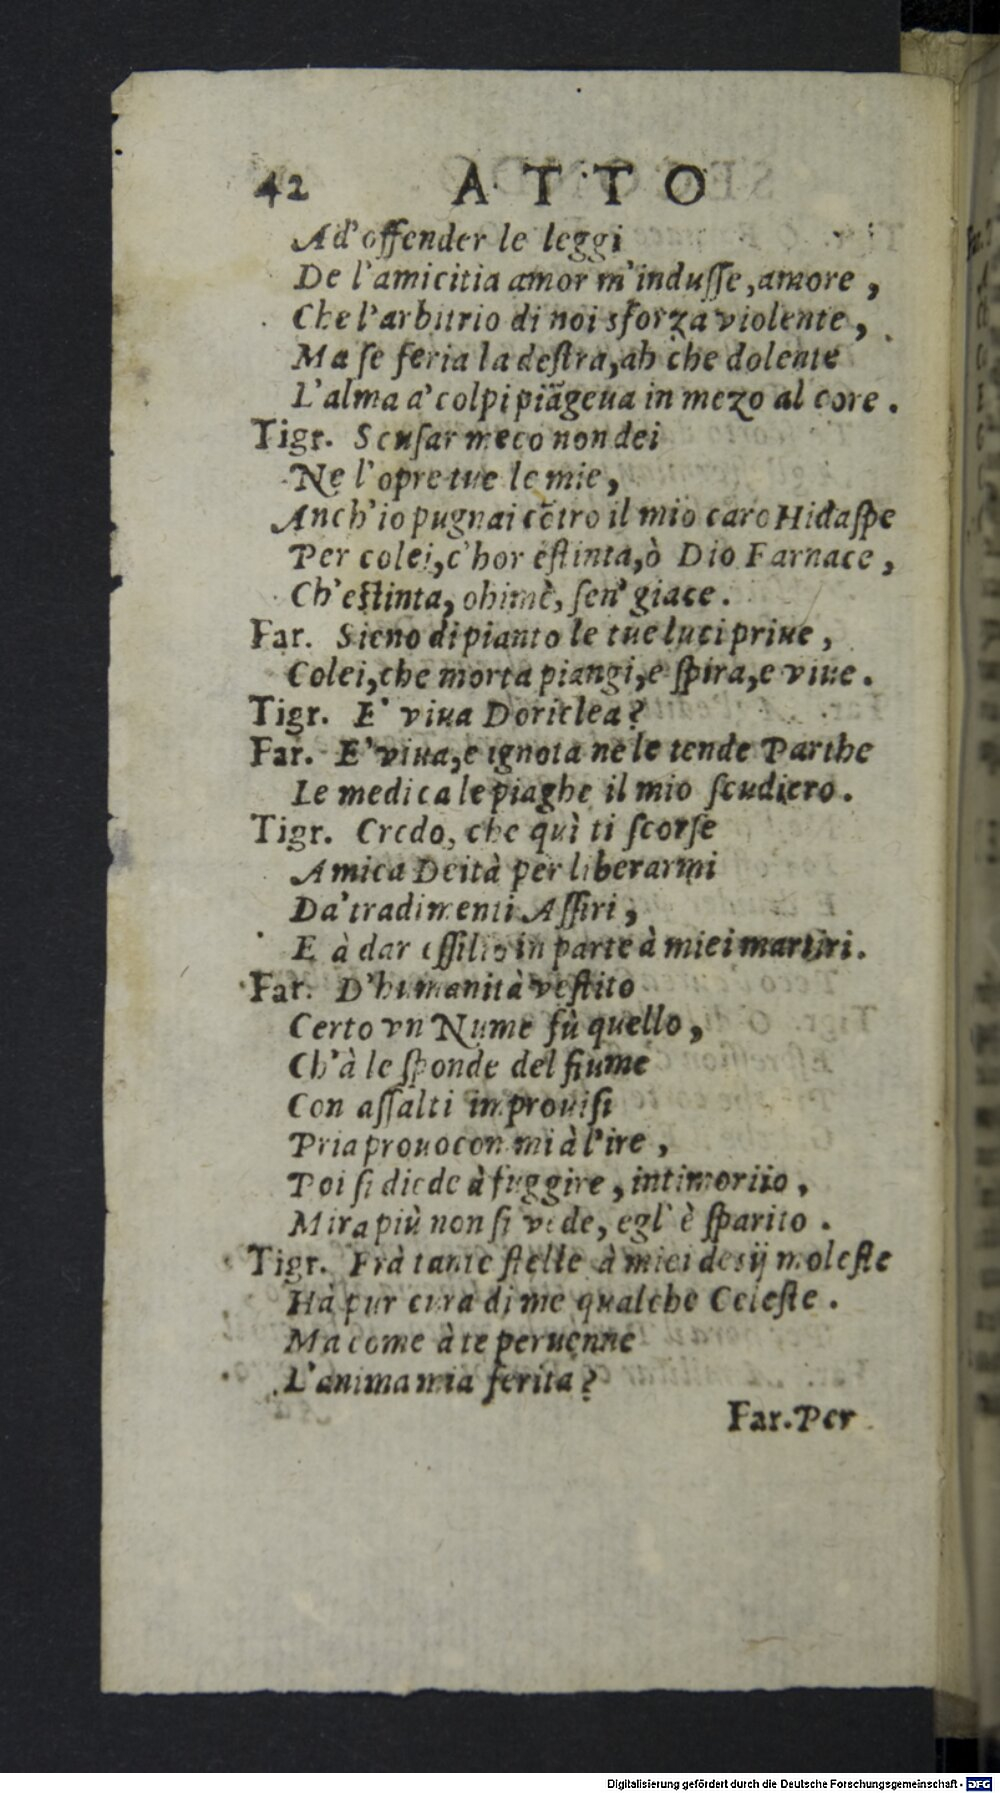 42 ATTO
Ad'offender le leggi
De l'amicitia amor m'induſſe, amore,
Che l'arbitrio di noi sforza violente,
Ma ſe feria la deſtra, ah che dolente
L'alma a' colpi piãgeua in mezo al core.
Tigr. Scuſar meco non dei
Ne l'opre tue le mie,
Anch'io pugnai cõtro il mio caro Hidaſpe
Per colei, c'hor eſtinta, ò Dio Farnace,
Ch'eſtinta, ohimè, ſen' giace.
Far. Sieno di pianto le tue luci priue,
Colei, che morta piangi, e ſpira, e viue.
Tigr. E' viua Doriclea?
Far. E' viua, e ignota ne le tende Parthe
Le medica le piaghe il mio ſcudiero.
Tigr. Credo, che quì ti ſcorſe
Amica Deità per liberarmi
Da' tradimenti Aſſiri,
E à dar eſſilio in parte à miei martiri.
Far. D'humanità veſtito
Certo vn Nume fù quello,
Ch'à le ſponde del fiume
Con aſſalti improuiſi
Pria prouocommi à l'ire,
Poi ſi diede à fuggire, intimorito,
Mira più non ſi vede, egl' è ſparito.
Tigr. Frà tante ſtelle à miei desij moleſte
Hà pur cura di me qualche Celeſte.
Ma come à te peruenne
L'anima mia ferita?
Far. Per
Digitalisierung gefördert durch die Deutsche Forschungsgemeinschaft - DFG